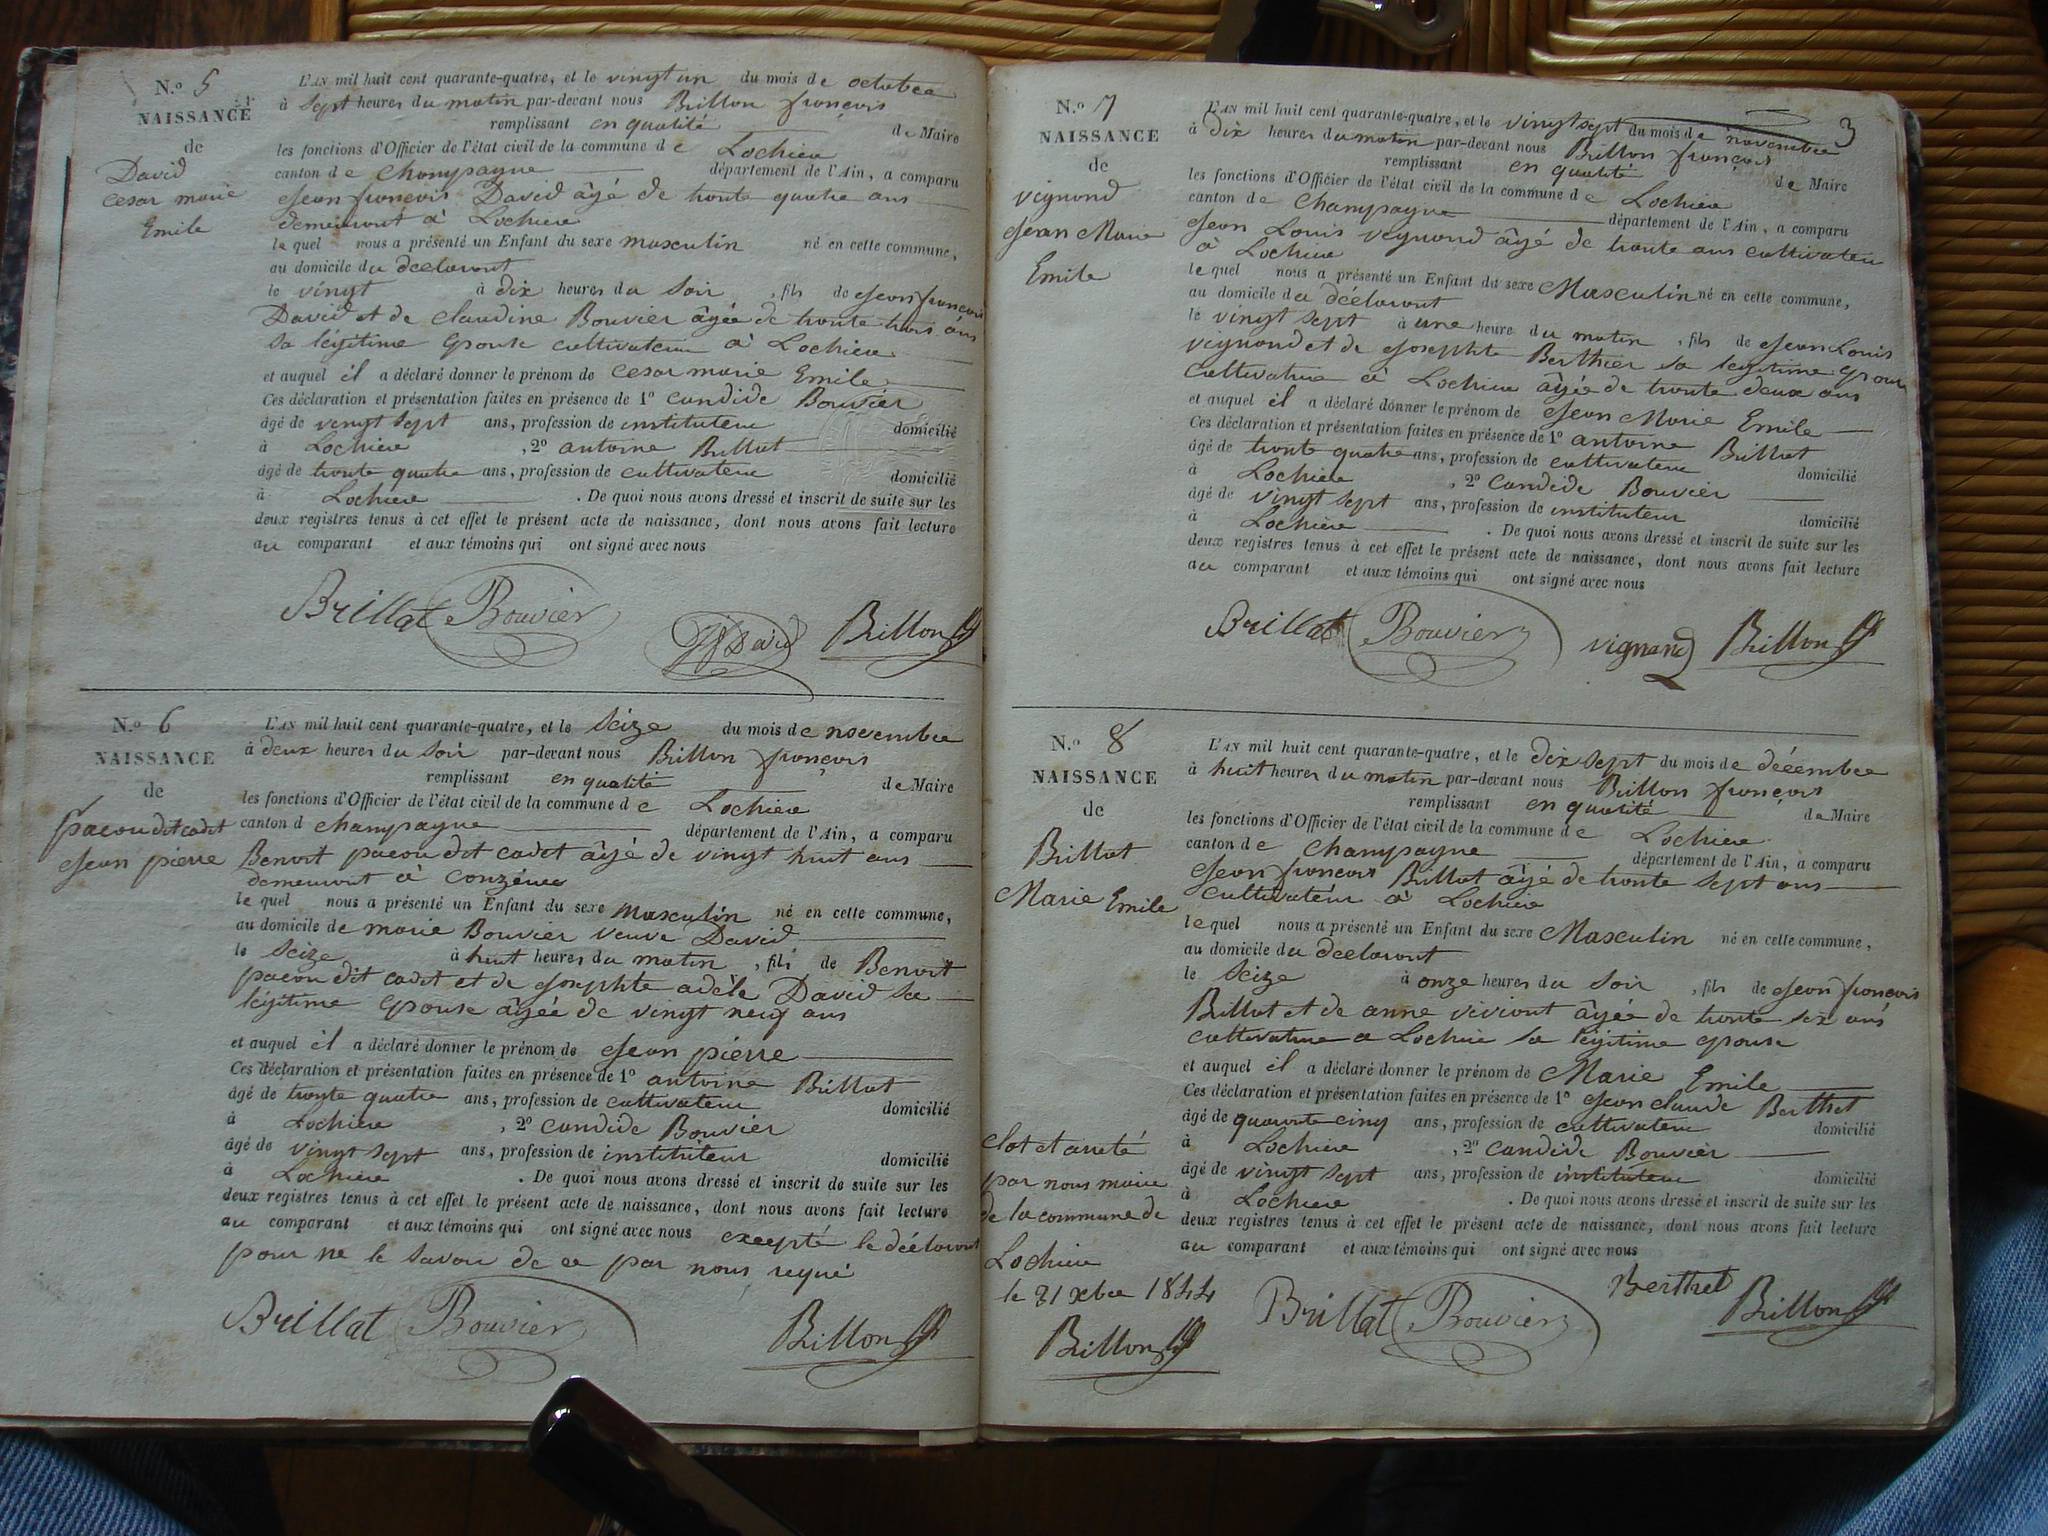 N.o 5
NAISSANCE
de
David
cesar marie
Emile
L'AN mil huit cent quarante-quatre, et le vingt un du mois de octobre
à sept heures du matin par-devant nous Brillon françois
remplissant en qualité de Maire
les fonctions d'Officier de l'état civil de la commune de Lochieu
canton de champagne département de l'Ain, a comparu
Jean françois David âgé de trente quatre ans
demeurant à Lochieu
le quel nous a présenté un Enfant du sexe masculin né en cette commune,
au domicile du déclarant
le vingt à dix heures du soir, fils de Jean françois
David et de claudine Bouvier âgée de trente trois ans
sa légitime epouse cultivateur à Lochieu
et auquel il a déclaré donner le prénom de cesar marie Emile
Ces déclaration et présentation faites en présence de 1° candide Bouvier
âgé de vingt sept ans, profession de instituteur domicilié
à Lochieu, 2° antoine Brillat
âgé de trente quatre ans, profession de cultivateur domicilié
à Lochieu. De quoi nous avons dressé et inscrit de suite sur les
deux registres tenus à cet effet le présent acte de naissance, dont nous avons fait lecture
au comparant et aux témoins qui ont signé avec nous
Brillat Bouvier David Brillon
N.o 6
NAISSANCE
de
pacou dit cadet
Jean pierre
L'AN mil huit cent quarante-quatre, et le seize du mois de novembre
à deux heures du soir par-devant nous Brillon françois
remplissant en qualité de Maire
les fonctions d'Officier de l'état civil de la commune de Lochieu
canton d champagne département de l'Ain, a comparu
Benoit pacou dit cadet âgé de vingt huit ans
demeurant à conzieu
le quel nous a présenté un Enfant du sexe masculin né en cette commune,
au domicile de marie Bouvier veuve David
le seize à huit heures du matin, fils de Benoit
pacou dit cadet et de Josephte adèle David sa
légitime epouse âgée de vingt neuf ans
et auquel il a déclaré donner le prénom de Jean pierre
Ces déclaration et présentation faites en présence de 1° antoine Brillat
âgé de trente quatre ans, profession de cultivateur domicilié
à Lochieu, 2° candide Bouvier
âgé de vingt sept ans, profession de instituteur domicilié
à Lochieu. De quoi nous avons dressé et inscrit de suite sur les
deux registres tenus à cet effet le présent acte de naissance, dont nous avons fait lecture
au comparant et aux témoins qui ont signé avec nous excepté le déclarant
pour ne le savoir de ce par nous requi
Brillat Bouvier Brillon
3
N.o 7
NAISSANCE
de
vignond
Jean Marie
Emile
L'AN mil huit cent quarante-quatre, et le vingt sept du mois de novembre
à dix heures du matin par-devant nous Brillon françois
remplissant en qualité de Maire
les fonctions d'Officier de l'état civil de la commune de Lochieu
canton de champagne département de l'Ain, a comparu
Jean Louis vignond âgé de trente ans cultivateur
à Lochieu
le quel nous a présenté un Enfant du sexe Masculin né en cette commune,
au domicile du déclarant
le vingt sept à une heure du matin, fils de Jean Louis
vignond et de Josephte Berthier sa legitime epouse
cultivateur à Lochieu âgée de trente deux ans
et auquel il a déclaré donner le prénom de Jean Marie Emile
Ces déclaration et présentation faites en présence de 1° antoine Brillat
âgé de trente quatre ans, profession de cultivateur domicilié
à Lochieu, 2° candide Bouvier
âgé de vingt sept ans, profession de instituteur domicilié
à Lochieu. De quoi nous avons dressé et inscrit de suite sur les
deux registres tenus à cet effet le présent acte de naissance, dont nous avons fait lecture
au comparant et aux témoins qui ont signé avec nous
Brillat Bouvier vignand Brillon
N.o 8
NAISSANCE
de
Brillat
Marie Emile
L'AN mil huit cent quarante-quatre, et le dix sept du mois de décembre
à huit heures du matin par-devant nous Brillon françois
remplissant en qualité de Maire
les fonctions d'Officier de l'état civil de la commune de Lochieu
canton de champagne département de l'Ain, a comparu
Jean françois Brillat âgé de trente sept ans
cultivateur à Lochieu
le quel nous a présenté un Enfant du sexe Masculin né en cette commune,
au domicile du déclarant
le seize à onze heures du soir, fils de Jean françois
Brillat et de anne viviant âgée de trente six ans
cultivateur a Lochieu sa légitime epouse
et auquel il a déclaré donner le prénom de Marie Emile
Ces déclaration et présentation faites en présence de 1° Jean claude Berthet
âgé de quarante cinq ans, profession de cultivateur domicilié
à Lochieu, 2° candide Bouvier
âgé de vingt sept ans, profession de instituteur domicilié
à Lochieu. De quoi nous avons dressé et inscrit de suite sur les
deux registres tenus à cet effet le présent acte de naissance, dont nous avons fait lecture
au comparant et aux témoins qui ont signé avec nous
Brillat Bouvier Berthet Brillon
clot et arreté
par nous maire
de la commune de
Lochieu
le 31 xbre 1844
Brillon